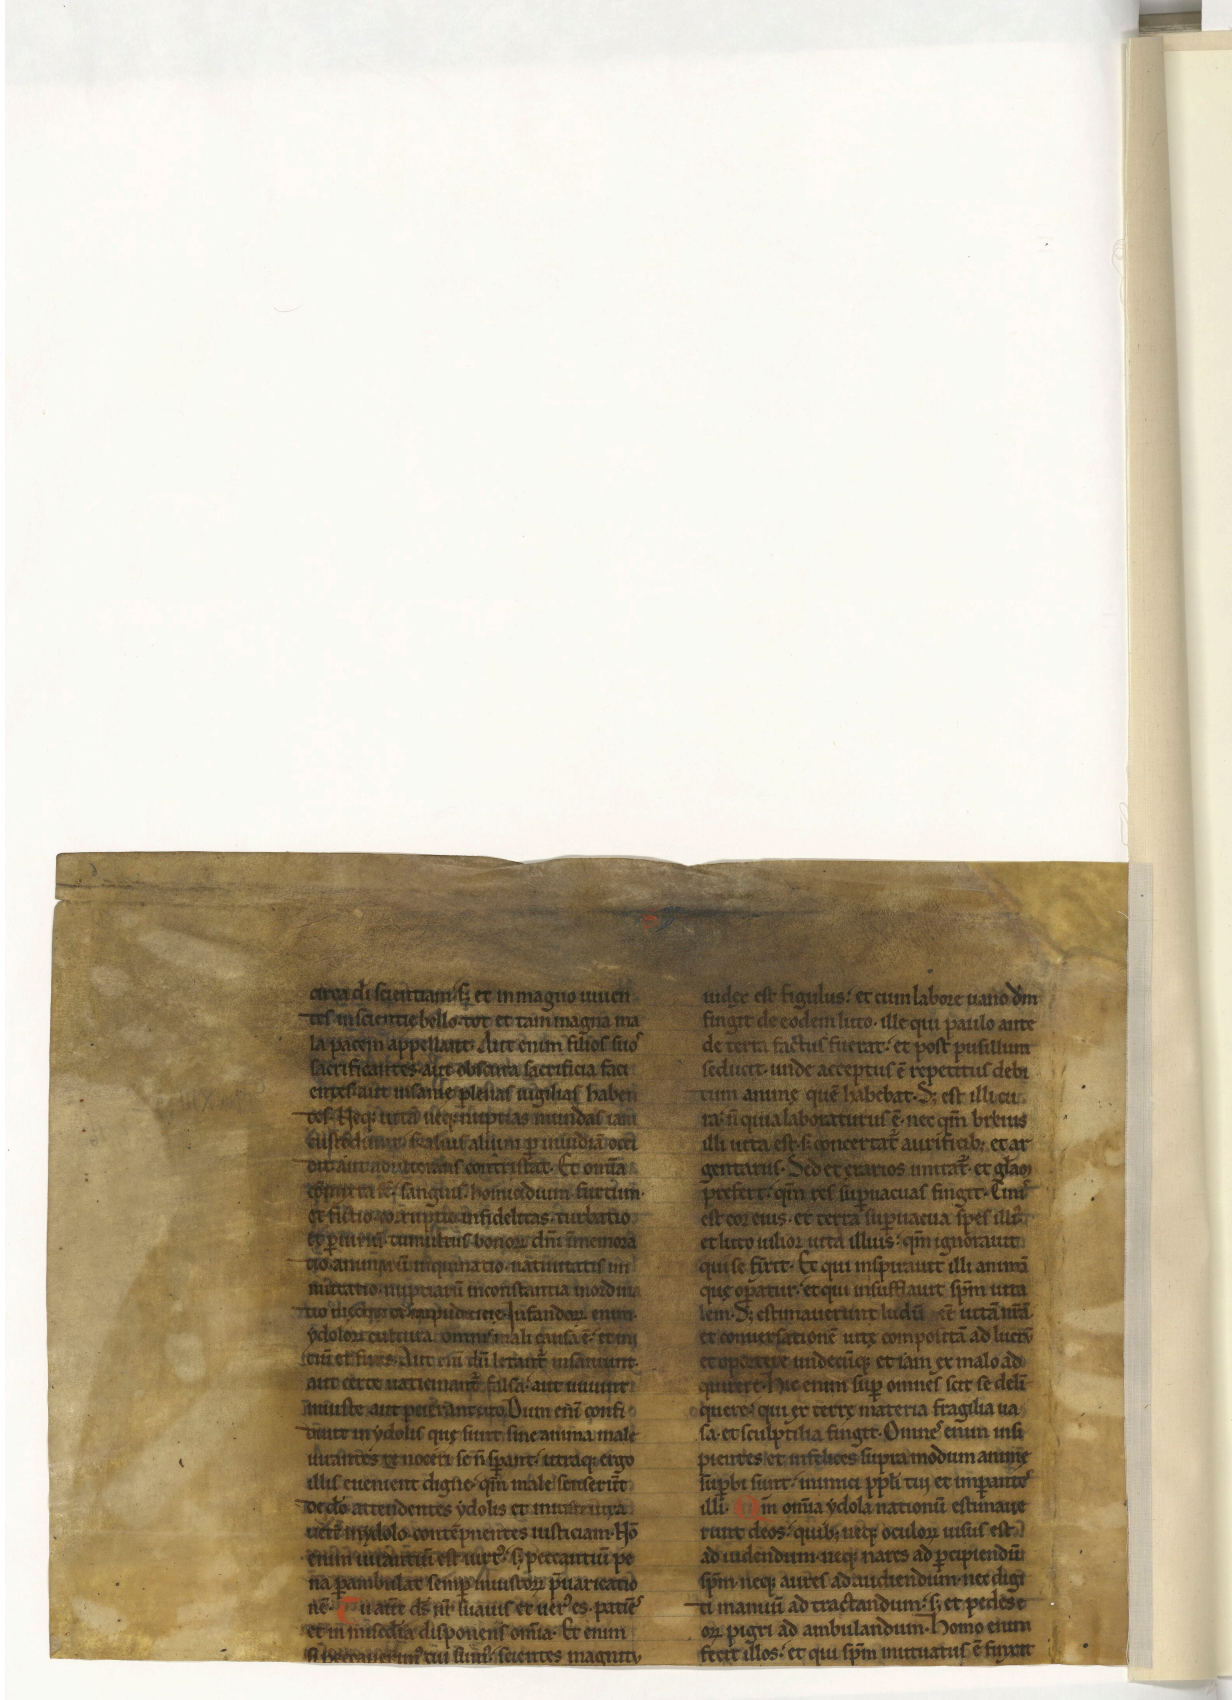 circa di scientiam· sꝫ et in magno uiuen
tes inscientie bello· tot et tam magna ma
la pacem appellant· Aut enim filios suos
sacrificantes aut obscura sacrificia faci
entes aut insanie plenas uigilias haben
tes· Neqꝫ uitā neqꝫ nuptias mundas iam
alium ꝑ inuidiā occi
dit aut adulterans contristat· Et omīa
sanguis· homicidium· furtum·
et fictio· corruptio infidelitas· turbatio
et ꝑiuriū· tumultus bonoꝝ dn̄i īmemora
tio animarū inquinatio· natiuitatis im
mutatio· nuptiarū inconstantia inordina
tio impudicicie· Infandoꝝ enim·
ydoloꝝ cultura· omnis mali causa ē· et ini
ciū et finis· Aut enī dū letant᷑ insaniunt·
aut certe uaticinant᷑ falsa· aut uiuunt
iniuste aut peierant cito· Dum enī confi
dunt in ydolis que sunt sine anima male
iurantes se noceri se n̄ sꝑant· utraqꝫ ergo
illis euenient digne· qm̄ male senserūt
de dō attendentes ydolis et iniuste iura
uerūt in ydolo· contēpnentes iusticiam· Nō
enim iurantiū est uirtꝰ· sꝫ peccantiū pe
na ꝑambulat semꝑ iniustoꝝ p̄uaricatio
nē· Tu autē ds̄ nr̄ suauis et uerꝰ es· patiēs
et in misc̄dia disponens om̄ia· Et enim
si peccauerimꝰ tui sumꝰ· scientes magnitu
uidez est figulus· et cum labore uano dm̄
fingit de eodem luto· ille qui paulo ante
de terra factus fuerat· et post pusillum
seducit· unde acceptus ē repetitus debi
tum anime quē habebat· Sꝫ est illi cu
ra· n̄ quia laboraturus ē· nec qm̄ breuis
illi uita est· sꝫ concertat᷑ aurificibꝫ et ar
gentariis· Sed et erarios imitat᷑· et glāoꝫ
prefert· qm̄ res suꝑuacuas fingit· Cinis
est cor eius· et terra suꝑuacua spes illiꝰ
et luto uilior uita illius· qm̄ ignorauit
qui se finxit· Et qui inspirauit illi animā
que oꝑatur· et qui insufflauit spm̄ uita
lem· Sꝫ estimauerunt ludū eē uitā nr̄ā
et conuersationē uite compositā ad lucrū
et oportere undecūqꝫ et iam ex malo ad
quirere· Hic enim suꝑ omnes scit se deli
quere· qui ex terre materia fragilia ua
sa· et sculptilia fingit· Omnes enim insi
pientes et infelices supra modum anime
suꝑbi sunt· inimici ppl̄i tui et imꝑantes
illi· Qm̄ om̄ia ydola nationū estimaue
runt deos· quibꝫ neqꝫ oculoꝝ uisus est
ad uidendum· neqꝫ nares ad ꝑcipiendū
spm̄· neqꝫ aures ad audiendum· nec digi
ti manuū ad tractandum· sꝫ et pedes e
oꝝ pigri ad ambulandum· Homo enim
fecit illos· et qui spm̄ mutuatus ē finxit